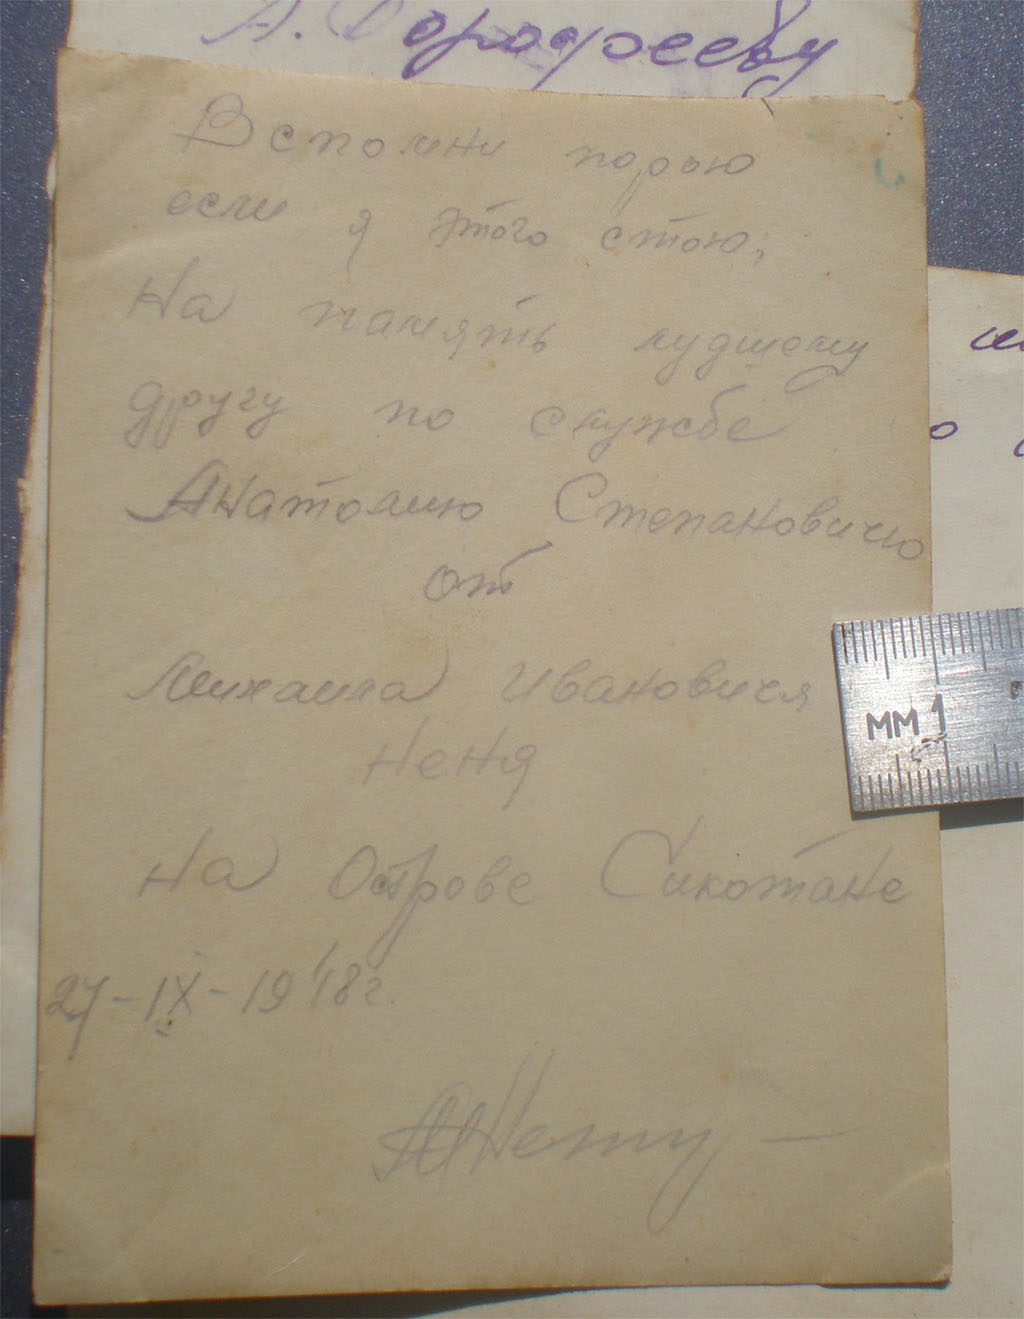 А. Дорофееву
Вспомни порою
если я этого стою,
На память лудшему
другу по службе
Анатолию Степановичю
от
Михаила Ивановичя
Неня
на Острове Сикотане
27-IX-1948г.
мм 1
о